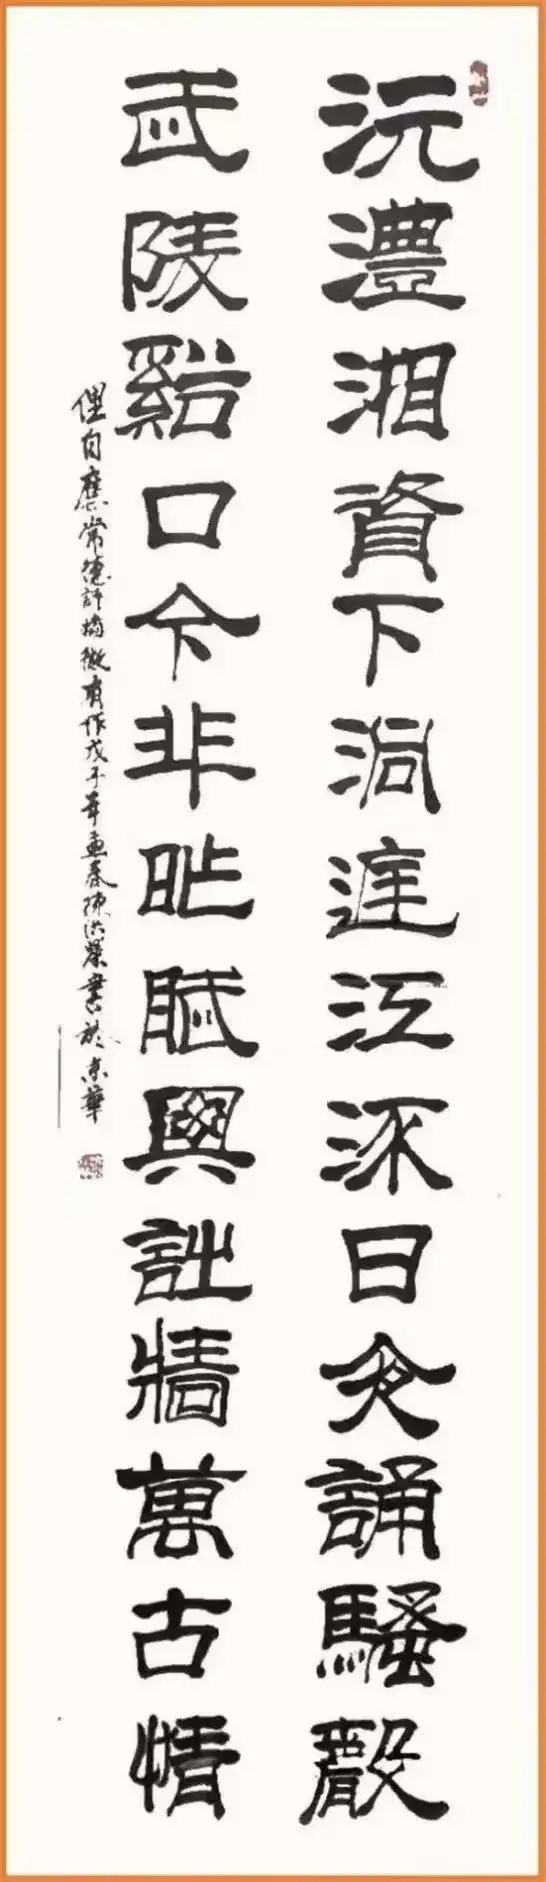 沅澧湘資下洞庭江流日夜誦騷聲
武陵谿口今非昨賦與詩牆萬古情
俚句應常德詩墻徵有作戊子年孟春陳洪書於京華